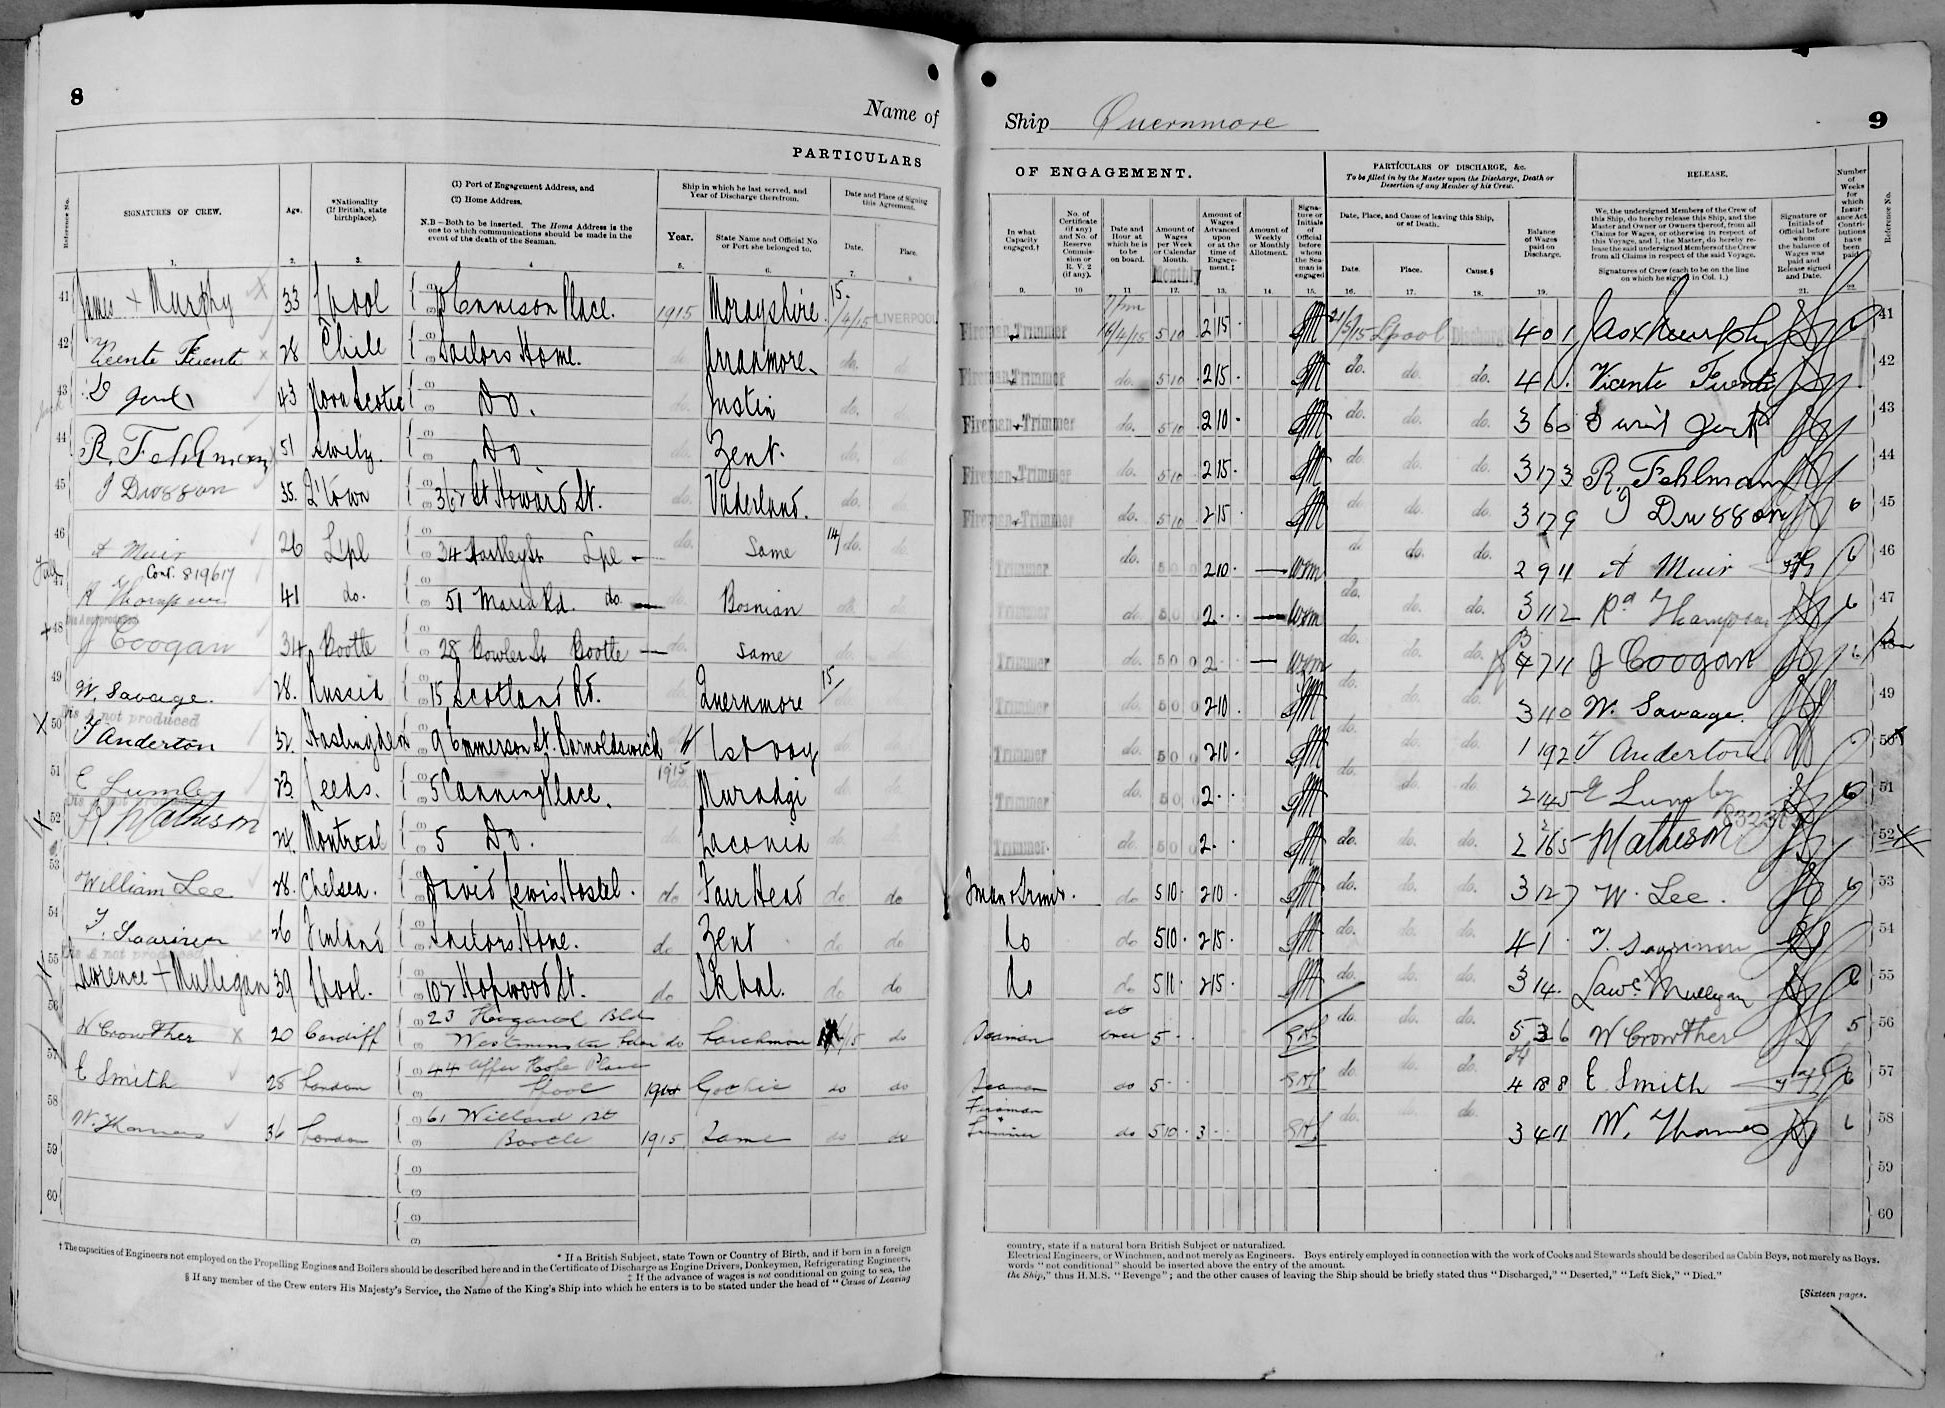 8
Name of
PARTICULARS
Reference No.
SIGNATURES OF CREW.
Age.
*Nationality (If British, state birthplace).
(1) Port of Engagement Address, and
(2) Home Address.
N.B—Both to be inserted. The Home Address is the one to which communications should be made in the event of the death of the Seaman.
Ship in which he last served, and Year of Discharge therefrom.
Year.
State Name and Official No or Port she belonged to.
Date and Place of Signing this Agreement.
Date.
Place.
1. 2. 3. 4 5. 6. 7. 8
41 James + Murphy 33 Lpool Ennison Place. 1915 Morayshire 15/4/15 LIVERPOOL
42 Vicente Fuente 28 Chile Sailors Home. do. Arranmore do. do.
43 43 Nova Scotia Do. do. Justin do. do.
44 R. Fehlmann 51 Do. do. Zent. do. do.
45 35. Q'town 362 St Howard St. do. Vaderland. do. do.
46 A Muir 26 Lpl 34 Lpl do. Same 14/ do. do.
Cont. 819617
47 R Thompson 41 do. 51 Maria Rd. do. do. Bosnian do. do.
Dis A not produced
48 J Coogan 34 Bootle 28 Bowler St Bootle do. Same do. do.
49 W. Savage. 28. Russia 15 Scotland Rd. do. Quernmore 15/ do.
Dis A not produced
50 T Anderton 32. Haslingden 9 Emmerson St. Barnoldswick 1st voy do. do.
51 E Lumley 23. Leeds. 5 Canning Place. 1915 do. Muradgi do. do.
52 R. Matheson 24. Montreal 5 Do. do. Laconia do. do.
53 William Lee 28. Chelsea. David Lewis Hostel. do Fair Head do do
54 T. Saarinen 26 Finland Sailors Home. do Zent do do
Dis A not produced
55 Lawrence + Mulligan 39 Lpool. 102 Hopwood St. do Ikbal. do do
56 W Crowther x 20 Cardiff 23 Bld
Westminster do do
57 E Smith 28 London 44 Upper Place
Lpool Gothic do do
58 W. Thomas 36 London 61 Willard St
Bootle 1915 Same do do
59
60
† The capacities of Engineers not employed on the Propelling Engines and Boilers should be described here and in the Certificate of Discharge as Engine Drivers, Donkeymen, Refrigerating Engineers,
* If a British Subject, state Town or Country of Birth, and if born in a foreign
‡ If the advance of wages is not conditional on going to sea, the
§ If any member of the Crew enters His Majesty's Service, the Name of the King's Ship into which he enters is to be stated under the head of "Cause of Leaving
Ship Quernmore
9
OF ENGAGEMENT.
PARTICULARS OF DISCHARGE, &c.
To be filled in by the Master upon the Discharge, Death or Desertion of any Member of his Crew.
RELEASE.
Number of Weeks for which Insurance Act Contributions have been paid
Reference No.
In what Capacity engaged.†
No. of Certificate (if any) and No. of Reserve Commission or R. V. 2 (if any).
Date and Hour at which he is to be on board.
Amount of Wages per Week or Calendar Month.
Monthly
Amount of Wages Advanced upon or at the time of Engagement.‡
Amount of Weekly or Monthly Allotment.
Signature or Initials of Official before whom the Seaman is engaged
Date, Place, and Cause of leaving this Ship, or of Death.
Date.
Place.
Cause.§
Balance of Wages paid on Discharge.
We, the undersigned Members of the Crew of this Ship, do hereby release this Ship, and the Master and Owner or Owners thereof, from all Claims for Wages, or otherwise in respect of this Voyage, and I, the Master, do hereby release the said undersigned Members of the Crew from all Claims in respect of the said Voyage.
Signatures of Crew (each to be on the line on which he signed in Col. 1.)
Signature or Initials of Official before whom the balance of Wages was paid and Release signed and Date.
9. 10 11 12. 13. 14. 15. 16. 17. 18. 19. 21. 22
Fireman & Trimmer 7 pm 16/4/15 5 10 2 15 · 21/5/15 Lpool Discharged 4 0 1 Jas x Murphy 6 41
Fireman & Trimmer do. 5 10 2 15 · do. do. do. 4 1 · Vicente Fuente 42
Fireman & Trimmer do. 5 10 2 10 · do. do. do. 3 6 0 43
Fireman & Trimmer do. 5 10 2 15 · do. do. do. 3 17 3 R. Fehlmann 44
Fireman & Trimmer do. 5 10 2 15 · do. do. do. 3 17 9 6 45
Trimmer do. 5 0 0 2 10 · — do. do. 2 9 11 A Muir 6 46
Trimmer do. 5 0 0 2 · · — do. do. do. 3 11 2 Rd Thompson 6 47
Trimmer do. 5 0 0 2 · — do. do. do. 7 11 J Coogan 6 48
Trimmer do. 5 0 0 2 10 · do. do. do. 3 4 0 W. Savage. 49
Trimmer do. 5 0 0 2 10 · do. do. do. 1 19 2 T Anderton 50
Trimmer do. 5 0 0 2 · · do. do. do. 2 14 5 E Lumley 6 51
Trimmer. do. 5 0 0 2 · do. do. do. 2 16 5 Matheson 52
Fman & Trimr. do 5 10 · 2 10 · do. do. do. 3 12 7 W. Lee. 6 53
do do 5 10 · 2 15 · do. do. do. 4 1 · T. Saarinen 54
do do 5 10 · 2 15 · do. do. do. 3 14 · Lawc x Mulligan 6 55
Seaman once 5 · · do. do. do. 5 3 6 W Crowther 5 56
Seaman do 5 · · do. do. do. 4 8 8 E Smith 6 57
Fireman & Trimmer do 5 10 · 3 · · do. do. 3 4 11 W. Thomas 6 58
59
60
country, state if a natural born British Subject or naturalized.
Electrical Engineers, or Winchmen, and not merely as Engineers. Boys entirely employed in connection with the work of Cooks and Stewards should be described as Cabin Boys, not merely as Boys.
words "not conditional" should be inserted above the entry of the amount.
the Ship," thus H.M.S. "Revenge"; and the other causes of leaving the Ship should be briefly stated thus "Discharged," "Deserted," "Left Sick," "Died."
[Sixteen pages.